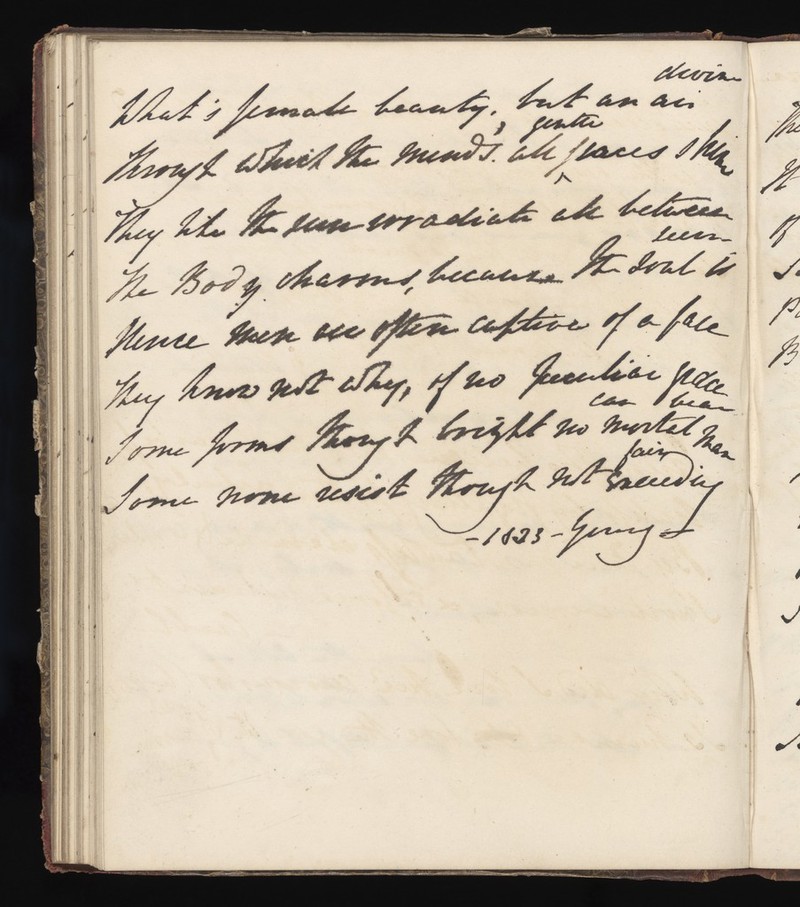 What's female beauty, but an air divine
Through which the mind's all gentle graces shine
They like the sun irradiate all between
The Body charms, because the Soul is seen
Hence men are often captive of a face
They know not why, of no peculiar grace
Some forms though bright no mortal man can bear
Some none resist though not exceeding fair
- 1823 - Young -